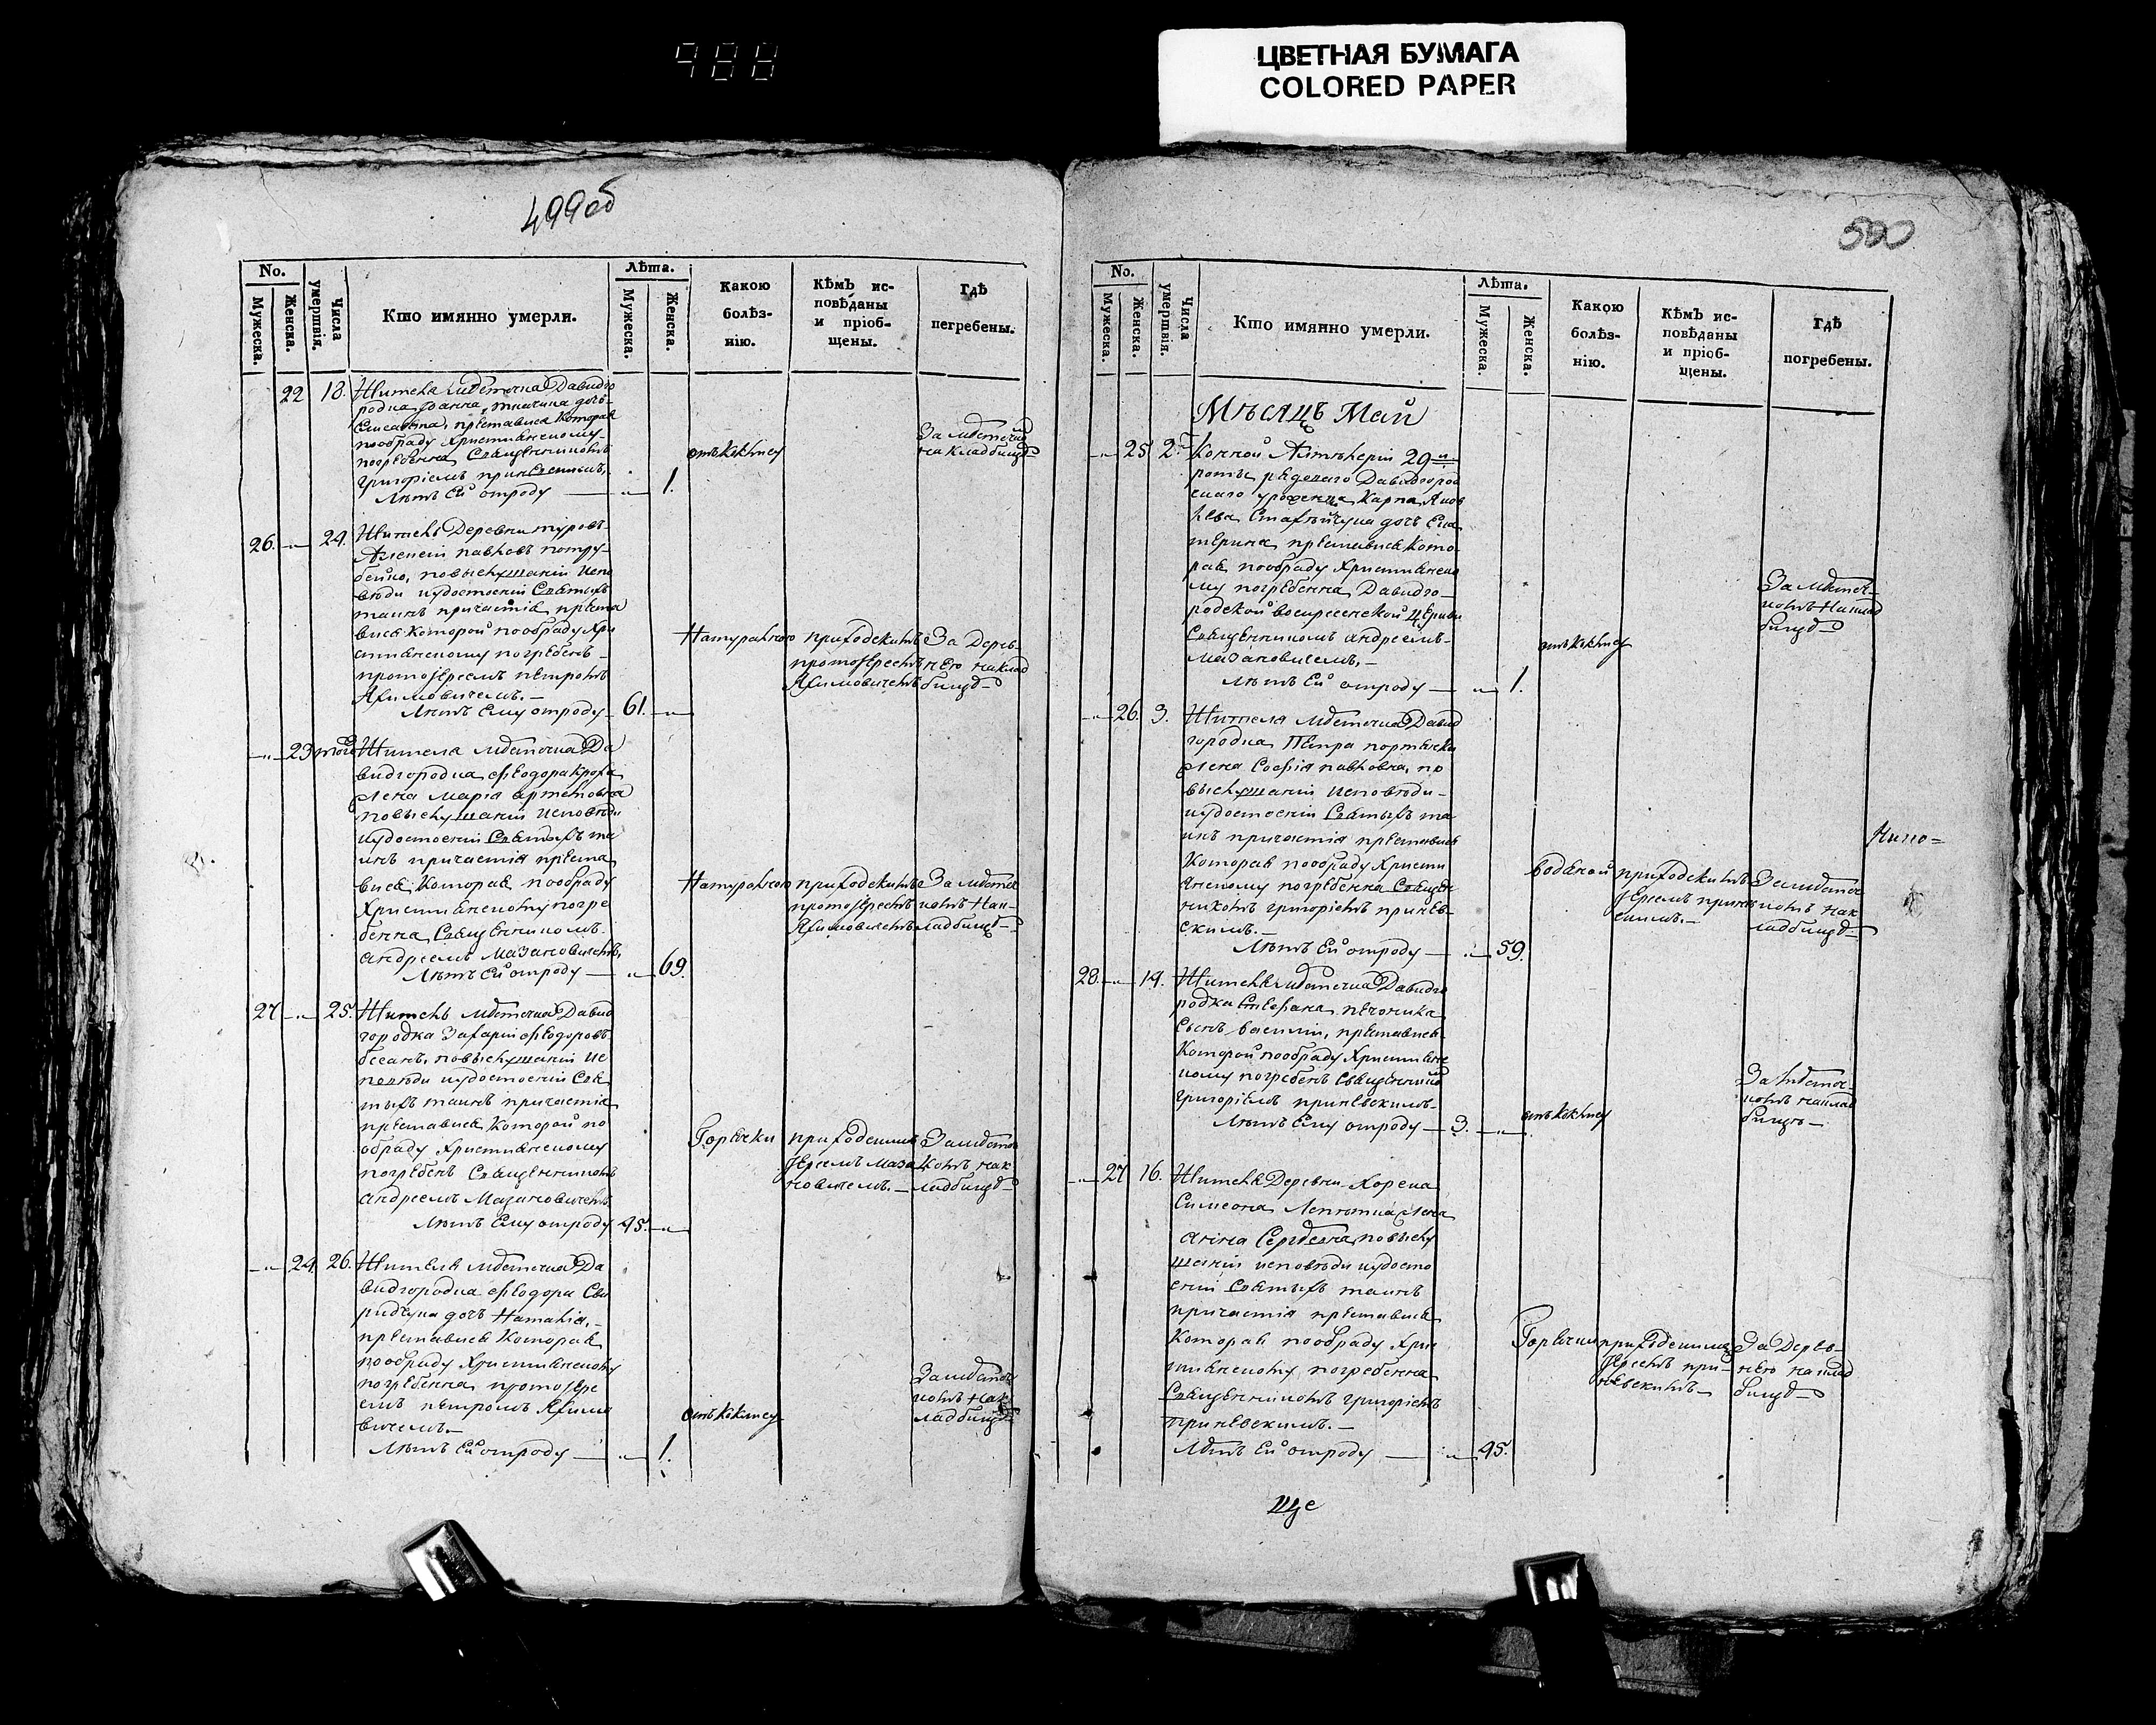 988
ЦВЕТНАЯ БУМАГА
COLORED PAPER
499об
No.
Мужеска.
Женска.
Числа умертвія.
Кто имянно умерли.
Лѣта.
Мужеска.
Женска.
Какою болѣз-
нію.
Кѣмъ ис-
повѣданы
и пріоб-
щены.
Гдѣ
погребены.
22 18. Жителя мѣстечка Давидго
родка дочь
преставися Которая
пообряду Християнскому
погребенна Священникомъ
Григоріемъ приневскимъ.
Лѣтъ Ей отроду — 1.
За мѣстечко
на кладбищѣ
26. 24. Житель Деревни туровъ
Алексѣй павловъ
повыслушаніи испо
вѣди иудостоеніи Святыхъ
таинъ причастія преста
вися Которой пообряду Хри
стианскому погребенъ
протоіереемъ петромъ
Якимовичемъ.—
Лѣтъ Ему отроду 61.
Натуральною
приходскимъ
протоіереемъ
Якимовичемъ
За Дерев-
нею наклад
бищѣ
23 того Жителя мѣстечка Да
видгородка Ѳеодора Кроха
жена Марія артемовна
повыслушаніи исповѣди
иудостоеніи Святыхъ та
инъ причастія преста
вися Которая пообряду
Християнскому погре
бенна Священникомъ
андреемъ Мазановичемъ,
Лѣтъ Ей отроду — 69.
Натуральною
приходскимъ
протоіереемъ
Якимовичемъ
За мѣстеч
комъ нак
ладбищѣ
27 25. Житель мѣстечка Давид
городка Захарій Ѳеодоровъ
повыслушаніи ис
повѣди иудостоеніи Свя
тыхъ таинъ причастія
преставися Которой по
обряду Християнскому
погребенъ Священникомъ
андреемъ Мазановичемъ
Лѣтъ Ему отроду 45.
Горячки
приходскимъ
Іереемъ Маза
новичемъ.—
Замѣстеч
комъ нак
ладбищѣ
24. 26. Жителя мѣстечка Да
видгородка Ѳеодора Сви
ридчука дочь Наталія,—
преставися Которая
пообряду Християнскому
погребенна протоіере
емъ петромъ Якимо
вичемъ.—
Лѣтъ Ей отроду — 1.
Замѣстеч
комъ нак
ладбищѣ
500
No.
Мужеска.
Женска.
Числа умертвія.
Кто имянно умерли.
Лѣта.
Мужеска.
Женска.
Какою
болѣз-
нію.
Кѣмъ ис-
повѣданы
и пріоб-
щены.
Гдѣ
погребены.
Мѣсяцъ Май
25 2. Конной Артилеріи 29й
роты Давидгород
скаго Карпа Яков
лева дочь Ека
терина преставися Кото
рая пообряду Християнско
му погребенна Давидго
родской воскресенской Церкви
Священникомъ андреемъ
мазановичемъ.—
Лѣтъ Ей отроду — 1.
За мѣстеч
комъ наклад
бищѣ
26. 3. Жителя мѣстечка Давид
городка Петра
жена Софія павловна, по
выслушаніи исповѣди
иудостоеніи Святыхъ та
инъ причастія преставися
Которая пообряду Христи
янскому погребенна Священ
никомъ григоріемъ принев
скимъ.—
Лѣтъ Ей отроду — 59.
водяной
приходскимъ
Іереемъ принев
скимъ.—
Замѣстеч
комъ нак
ладбищѣ
Нико=
28. 14. Жителя мѣстечка Давидго
родка Стефана печоника
сынъ василій, преставися
Которой пообряду Християнс
кому погребенъ Священнико
григоріемъ приневскимъ
Лѣтъ Ему отроду — 3.
За мѣстеч
комъ наклад
бищѣ—
27 16. Жителя Деревни Хорска
Симеона жена
анна Сергѣевна повыслу
шаніи исповѣди иудосто
еніи Святыхъ таинъ
причастія преставися
Которая пообряду Хрис
тианскому погребенна
Священникомъ григоріемъ
приневскимъ.—
Лѣтъ Ей отроду — 45.
Горячки
приходскимъ
Іереемъ при
невскимъ—
За Дерев-
нею наклад
бищѣ
Ще